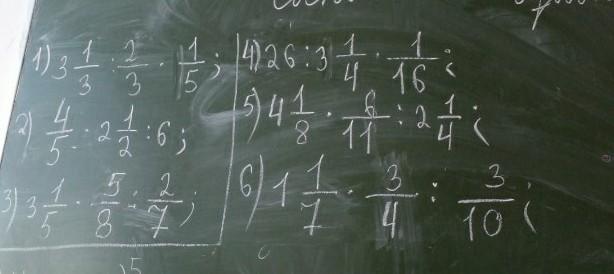 1) 3 1/3 : 2/3 · 1/5;
2) 4/5 · 2 1/2 : 6;
3) 3 1/5 · 5/8 : 2/7;
4) 26 : 3 1/4 · 1/16;
5) 4 1/8 · 6/11 : 2 1/4;
6) 1 1/7 · 3/4 : 3/10;